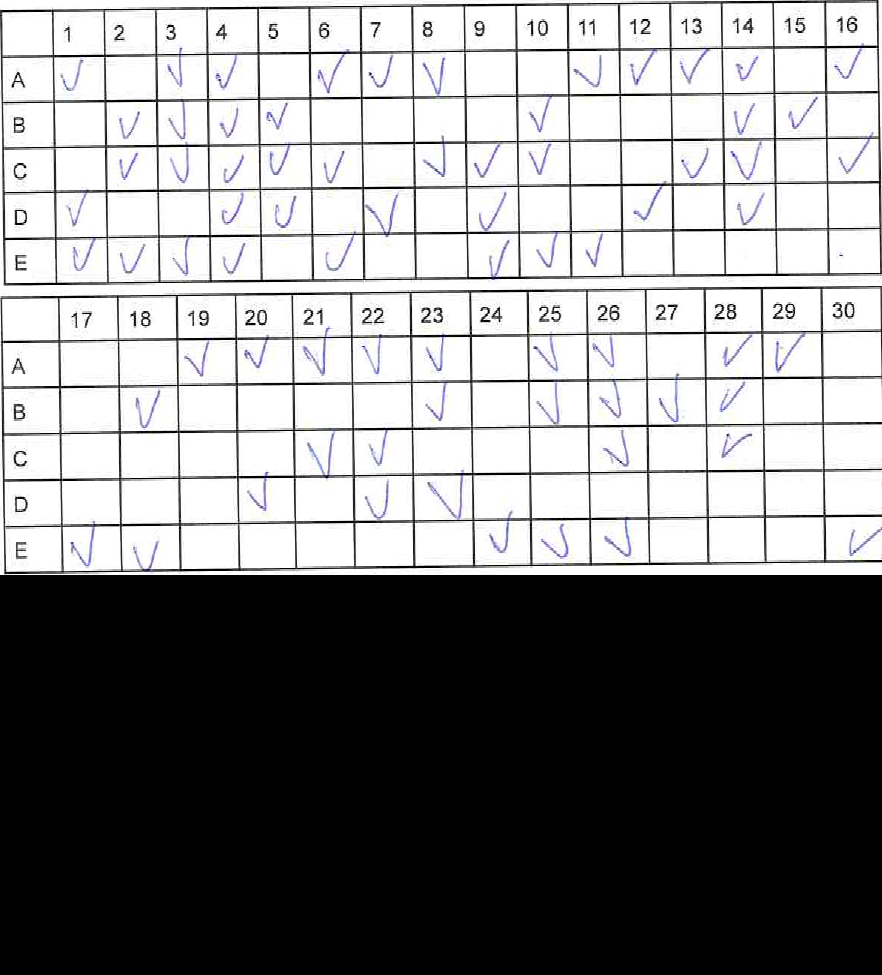 1 2 3 4 5 6 7 8 9 10 11 12 13 14 15 16
A ✓ ✓ ✓ ✓ ✓ ✓ ✓ ✓ ✓ ✓ ✓
B ✓ ✓ ✓ ✓ ✓ ✓ ✓
C ✓ ✓ ✓ ✓ ✓ ✓ ✓ ✓ ✓ ✓ ✓
D ✓ ✓ ✓ ✓ ✓ ✓ ✓
E ✓ ✓ ✓ ✓ ✓ ✓ ✓ ✓
17 18 19 20 21 22 23 24 25 26 27 28 29 30
A ✓ ✓ ✓ ✓ ✓ ✓ ✓ ✓ ✓
B ✓ ✓ ✓ ✓ ✓ ✓
C ✓ ✓ ✓ ✓
D ✓ ✓ ✓
E ✓ ✓ ✓ ✓ ✓ ✓